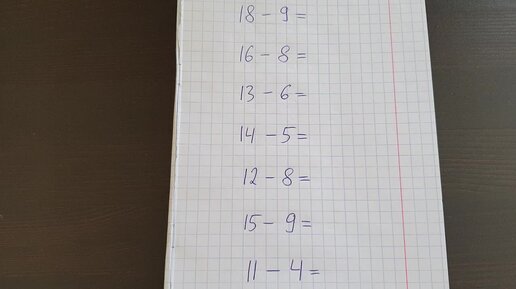 18 - 9 =
16 - 8 =
13 - 6 =
14 - 5 =
12 - 8 =
15 - 9 =
11 - 4 =